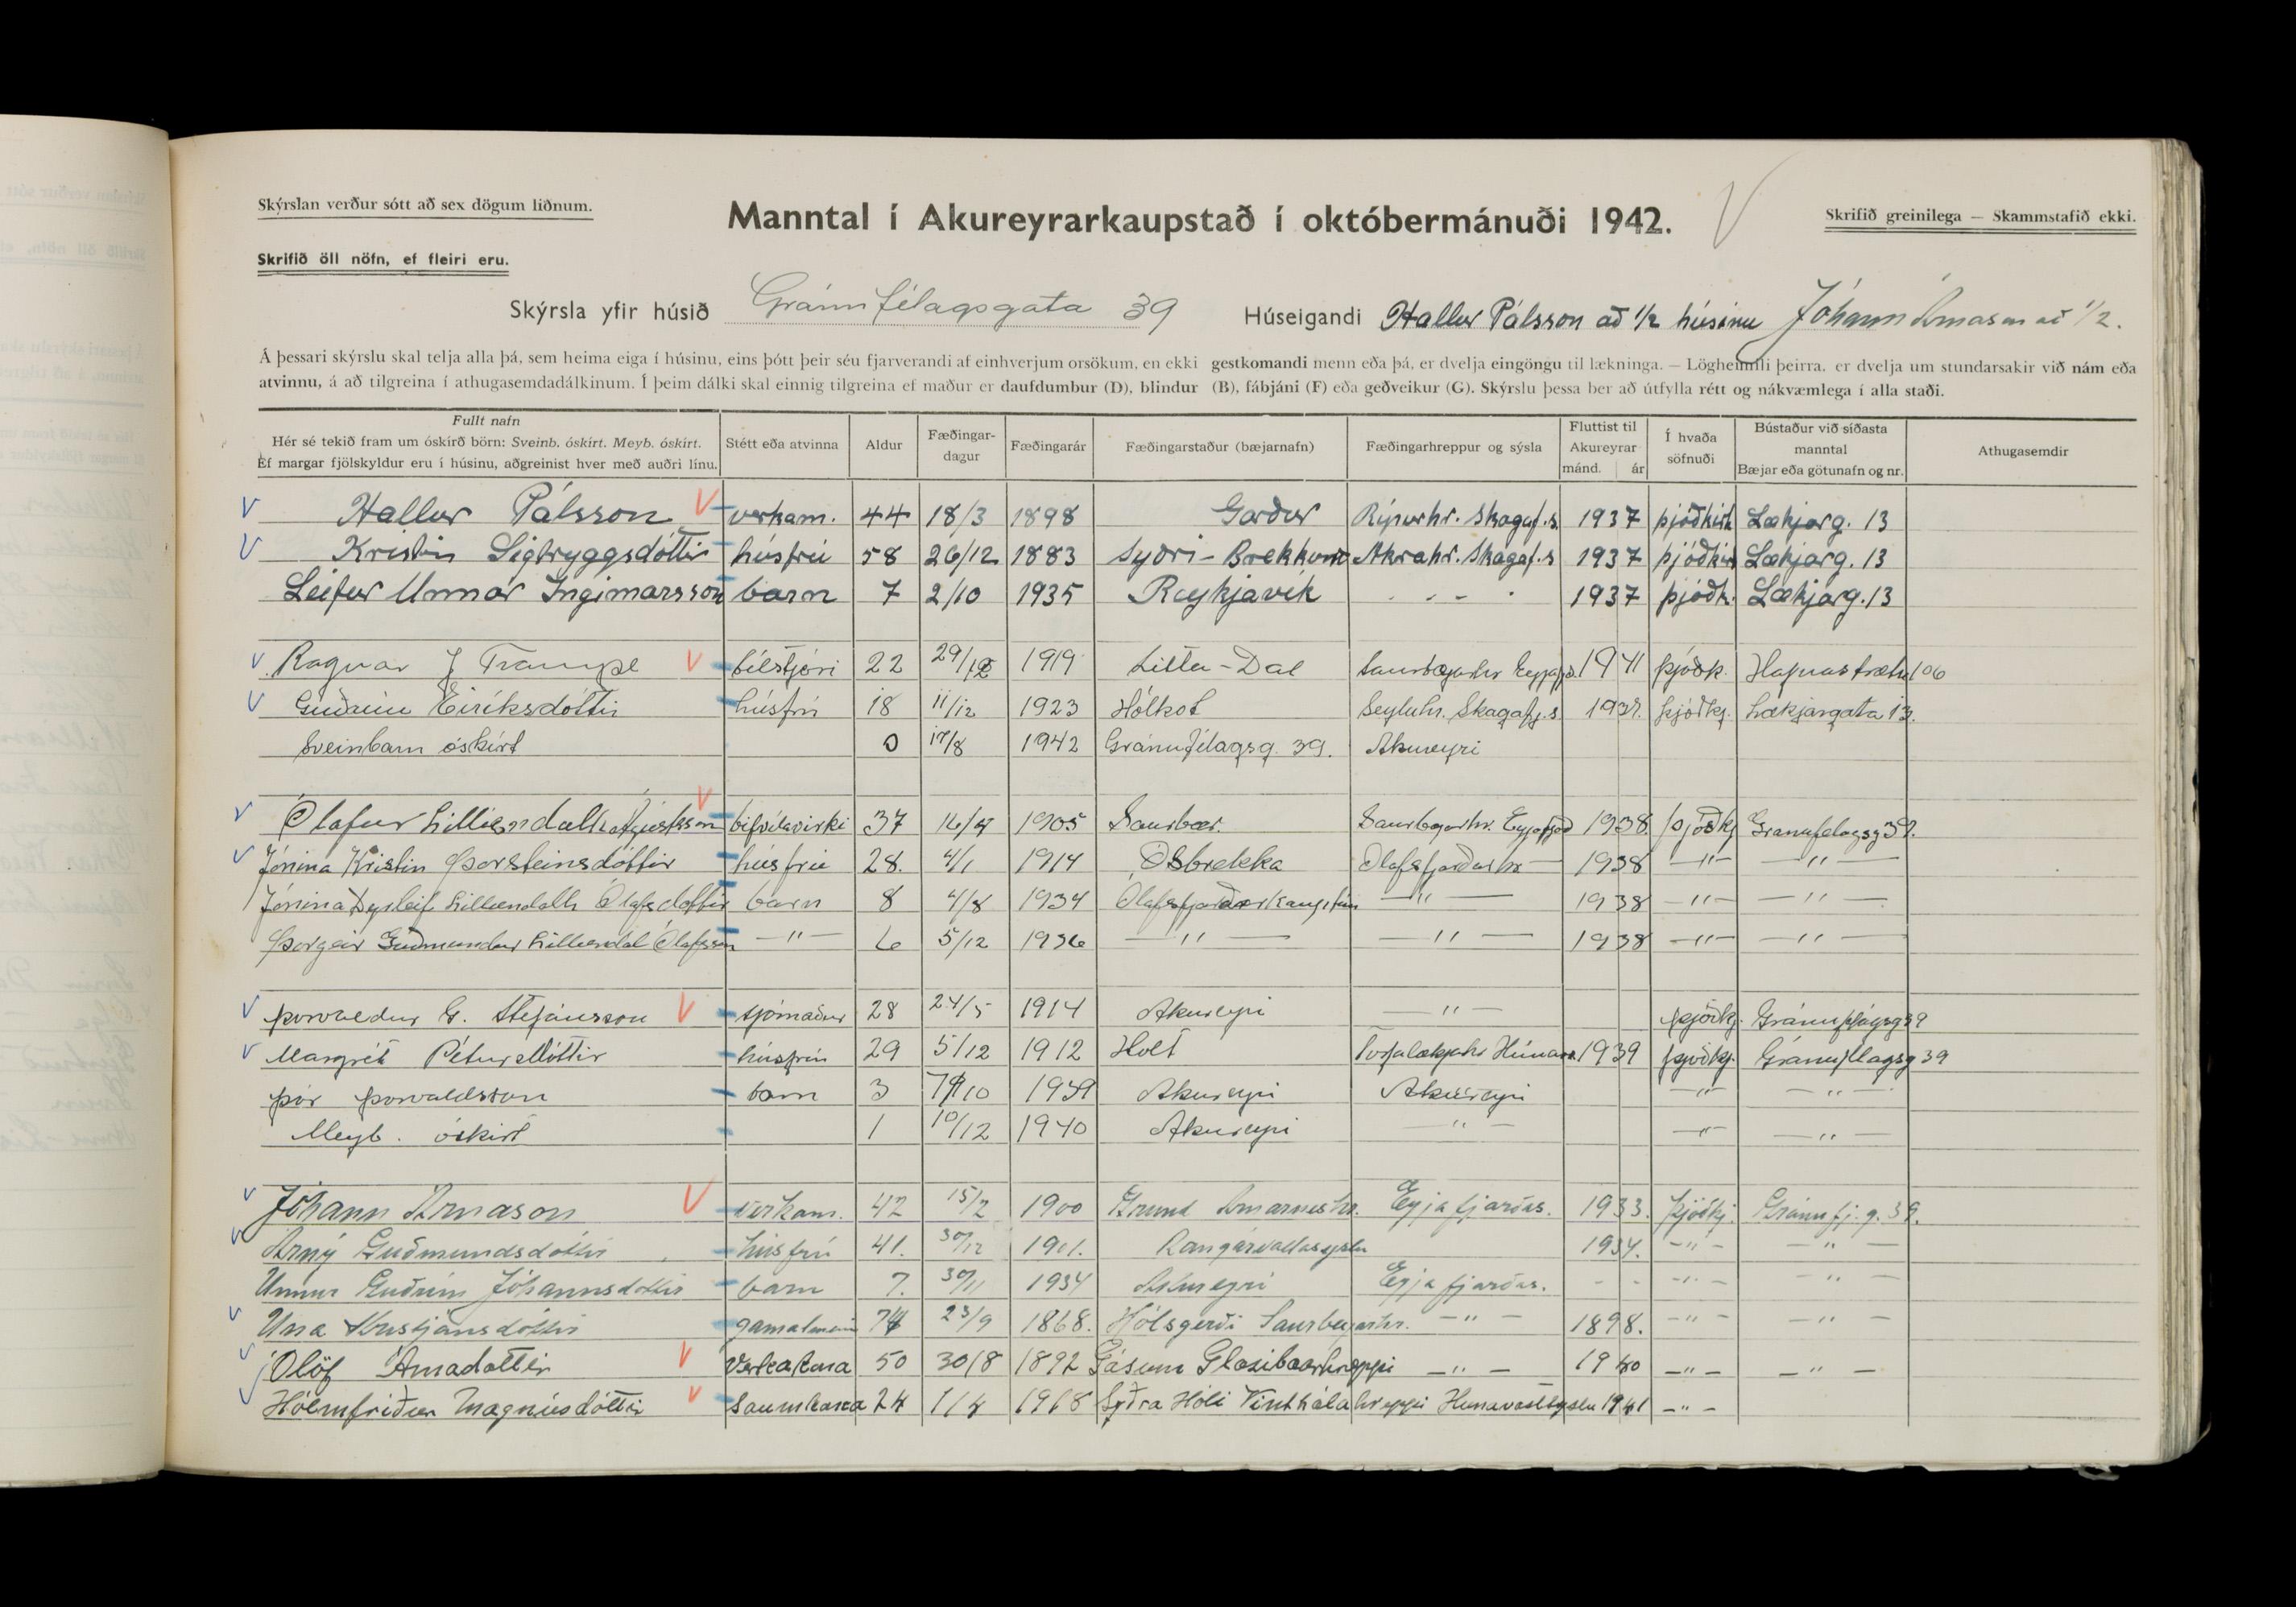 Skýrslan verður sótt að sex dögum liðnum.
Manntal í Akureyrarkaupstað í októbermánuði 1942.
Skrifið greinilega — Skammstafið ekki.
Skrifið öll nöfn, ef fleiri eru.
Skýrsla yfir húsið Gránufélagsgata 39 Húseigandi Hallur Pálsson að 1/2 húsinu Jóhann Árnason að 1/2.
Á þessari skýrslu skal telja alla þá, sem heima eiga í húsinu, eins þótt þeir séu fjarverandi af einhverjum orsökum, en ekki gestkomandi menn eða þá, er dvelja eingöngu til lækninga. — Lögheimili þeirra, er dvelja um stundarsakir við nám eða
atvinnu, á að tilgreina í athugasemdadálkinum. Í þeim dálki skal einnig tilgreina ef maður er daufdumbur (D), blindur (B), fábjáni (F) eða geðveikur (G). Skýrslu þessa ber að útfylla rétt og nákvæmlega í alla staði.
Fullt nafn
Hér sé tekið fram um óskírð börn: Sveinb. óskírt. Meyb. óskírt.
Ef margar fjölskyldur eru í húsinu, aðgreinist hver með auðri línu.
Stétt eða atvinna
Aldur
Fæðingar-
dagur
Fæðingarár
Fæðingarstaður (bæjarnafn)
Fæðingarhreppur og sýsla
Fluttist til
Akureyrar
mánd. ár
Í hvaða
söfnuði
Bústaður við síðasta
manntal
Bæjar eða götunafn og nr.
Athugasemdir
Hallur Pálsson verkam. 44 18/3 1898 Garður Rípurhr. Skagaf.s. 1937 þjóðkirk Lækjarg. 13
Kristín Sigtryggsdóttir húsfrú 58 26/12 1883 Syðri-Brekkum Akrahr. Skagaf.s 1937 þjóðkirk Lækjarg. 13
Leifur Unnar Ingimarsson barn 7 2/10 1935 Reykjavík - - - - 1937 þjóðk. Lækjarg. 13
Ragnar J Trampe bílstjóri 22 29/12 1919 Litla-Dal Saurbæjarhr Eyjafjs. 1941 þjóðk. Hafnarstræti 106
Guðrún Eiríksdóttir húsfrú 18 11/12 1923 Hólkot Seyluhr. Skagafj.s 1937. þjóðkj. Lækjargata 13.
Sveinbarn óskírt 0 17/8 1942 Gránufélagsg. 39. Akureyri
Ólafur Lilliendalh Ágústsson bifvélavirki 37 1905 Saurbær. Saurbæjarhr. Eyjafjörð 1938. þjóðkj Gránufelagsg 39.
Jónína Kristín Þorsteinsdóttir húsfrú 28. 4/1 1914 Ósbrekka Ólafsfjarðarhr — 1938 —"— —"—
Jónína Lilliendalh Ólafsdóttir barn 8 4/8 1934 Ólafsfjarðarkaupstún —"— 1938 —"— —"—
Þorgeir Guðmundur Lilliendal Ólafsson —"— 6 5/12 1936 —"— —"— 1938 —"— —"—
Þorvaldur G. Stefánsson sjómaður 28 24/5 1914 Akureyri —"— þjóðkj. Gránufélagsg 39
Margrét Pétursdóttir húsfrú 29 5/12 1912 Holt Torfalækjahr Húnavs. 1939 þjóðkj. Gránufélagsg 39
Þór Þorvaldsson barn 3 1939 Akureyri Akureyri —"— —"—
Meyb. óskírt 1 10/12 1940 Akureyri —"— —"— —"—
Jóhann Árnason verkam. 42 15/2 1900 Grund Arnarneshr. Eyjafjarðas. 1933. þjóðkj. Gránufj.g. 39.
Árný Guðmundsdóttir húsfrú 41. 30/12 1901. Rangárvallasýslu 1934. —"— —"—
Unnur Guðrún Jóhannsdóttir barn 7. 30/11 1934 Akureyri Eyjafjarðas. - - —"— —"—
Una Kristjánsdóttir gamalmenni 74 23/9 1868. Hólsgerði Saurbæjarhr. —"— 1898. —"— —"—
Ólöf Árnadóttir Verkakona 50 30/8 1892 Gásum Glæsibæarhreppi —"— 1940 —"— —"—
Hólmfríður Magnúsdóttir Saumakona 24 1/4 1918 Syðra Hóli Vinthálahreppi Hunavatssyslu 1941 —"—